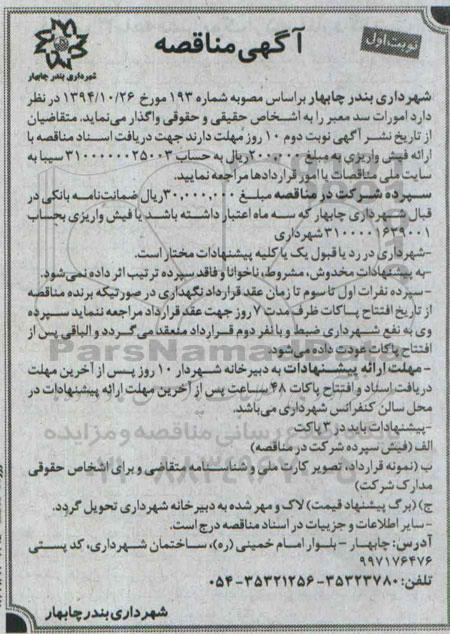 نوبت اول
آگهی مناقصه
شهرداری بندر چابهار
شهرداری بندر چابهار براساس مصوبه شماره ۱۹۳ مورخ ۱۳۹۴/۱۰/۲۶ در نظر
دارد امورات سد معبر را به اشخاص حقیقی و حقوقی واگذار می‌نماید. متقاضیان
از تاریخ نشر آگهی نوبت دوم ۱۰ روز مهلت دارند جهت دریافت اسناد مناقصه با
ارائه فیش واریزی به مبلغ ۲۰۰,۰۰۰ریال به حساب ۳۱۰۰۰۰۰۰۲۵۰۰۳ سیبا به
سایت ملی مناقصات یا امور قراردادها مراجعه نمایید.
سپرده شرکت در مناقصه مبلغ ۳۰,۰۰۰,۰۰۰ریال ضمانت‌نامه بانکی در
قبال شهرداری چابهار که سه ماه اعتبار داشته باشد یا فیش واریزی بحساب
۳۱۰۰۰۰۱۶۳۹۰۰۱ شهرداری
-شهرداری در رد یا قبول یک یا کلیه پیشنهادات مختار است.
-به پیشنهادات مخدوش، مشروط، ناخوانا و فاقد سپرده ترتیب اثر داده نمی‌شود.
-سپرده نفرات اول تا سوم تا زمان عقد قرارداد نگهداری در صورتیکه برنده مناقصه
از تاریخ افتتاح پاکات ظرف مدت ۷ روز جهت عقد قرارداد مراجعه ننماید سپرده
وی به نفع شهرداری ضبط و با نفر دوم قرارداد منعقد می‌گردد و الباقی پس از
افتتاح پاکات عودت داده می‌شود.
-مهلت ارائه پیشنهادات به دبیرخانه شهردار ۱۰ روز پس از آخرین مهلت
دریافت اسناد و افتتاح پاکات ۴۸ ساعت پس از آخرین مهلت ارائه پیشنهادات در
محل سالن کنفرانس شهرداری می‌باشد.
-پیشنهادات باید در ۳ پاکت
الف (فیش سپرده شرکت در مناقصه)
ب (نمونه قرارداد، تصویر کارت ملی و شناسنامه متقاضی و برای اشخاص حقوقی
مدارک شرکت)
ج) (برگ پیشنهاد قیمت) لاک و مهر شده به دبیرخانه شهرداری تحویل گردد.
-سایر اطلاعات و جزییات در اسناد مناقصه درج است.
آدرس: چابهار – بلوار امام خمینی (ره)، ساختمان شهرداری، کد پستی
۹۹۷۱۷۶۴۷۶
تلفن: ۳۵۳۲۳۷۸۰-۳۵۳۲۱۲۵۶-۰۵۴
شهرداری بندر چابهار
ParsNamadData